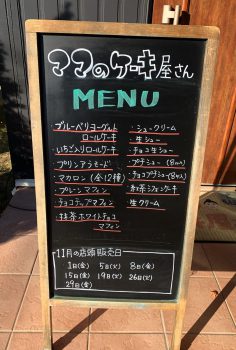 ママのケーキ屋さん
MENU
・ブルーベリーヨーグルト
ロールケーキ
・いちご入りロールケーキ
・プリンアラモード
・マカロン(全12種)
・プレーンマフィン
・チョコチップマフィン
・抹茶ホワイトチョコ
マフィン
・シュークリーム
・生シュー
・チョコ生シュー
・プチシュー(8コ入)
・チョコプチシュー(8コ入)
・紅茶シフォンケーキ
・生クリーム
11月の店頭販売日
1日(金) 5日(火) 8日(金)
15日(金) 19日(火) 26日(火)
29日(金)